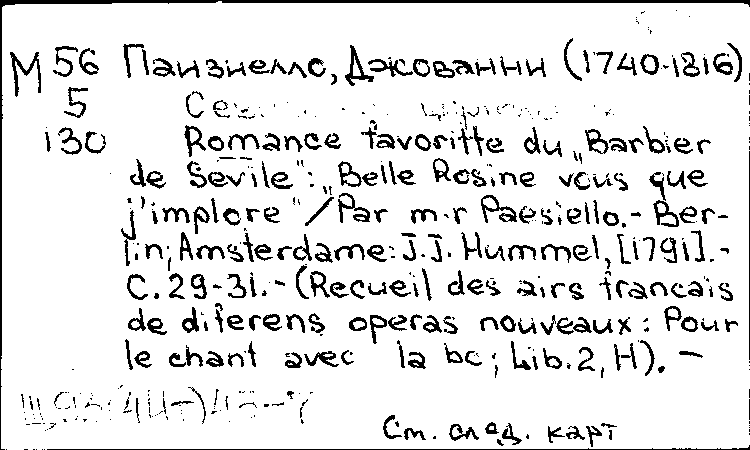 М 56 Паизиелло, Джованни (1740-1816)
5
130 Romance favoritte du „Barbier
de Sevile": „Belle Rosine vous que
j'implore" / Par m-r Paesiello. - Ber-
lin; Amsterdame: J.J. Hummel, [1791]. -
С. 29-31. - (Recueil des airs francais
de diferens operas nouveaux: Pour
le chant avec la bc; Lib. 2, H). -
Щ93(4Ит)43-7
См. след. карт